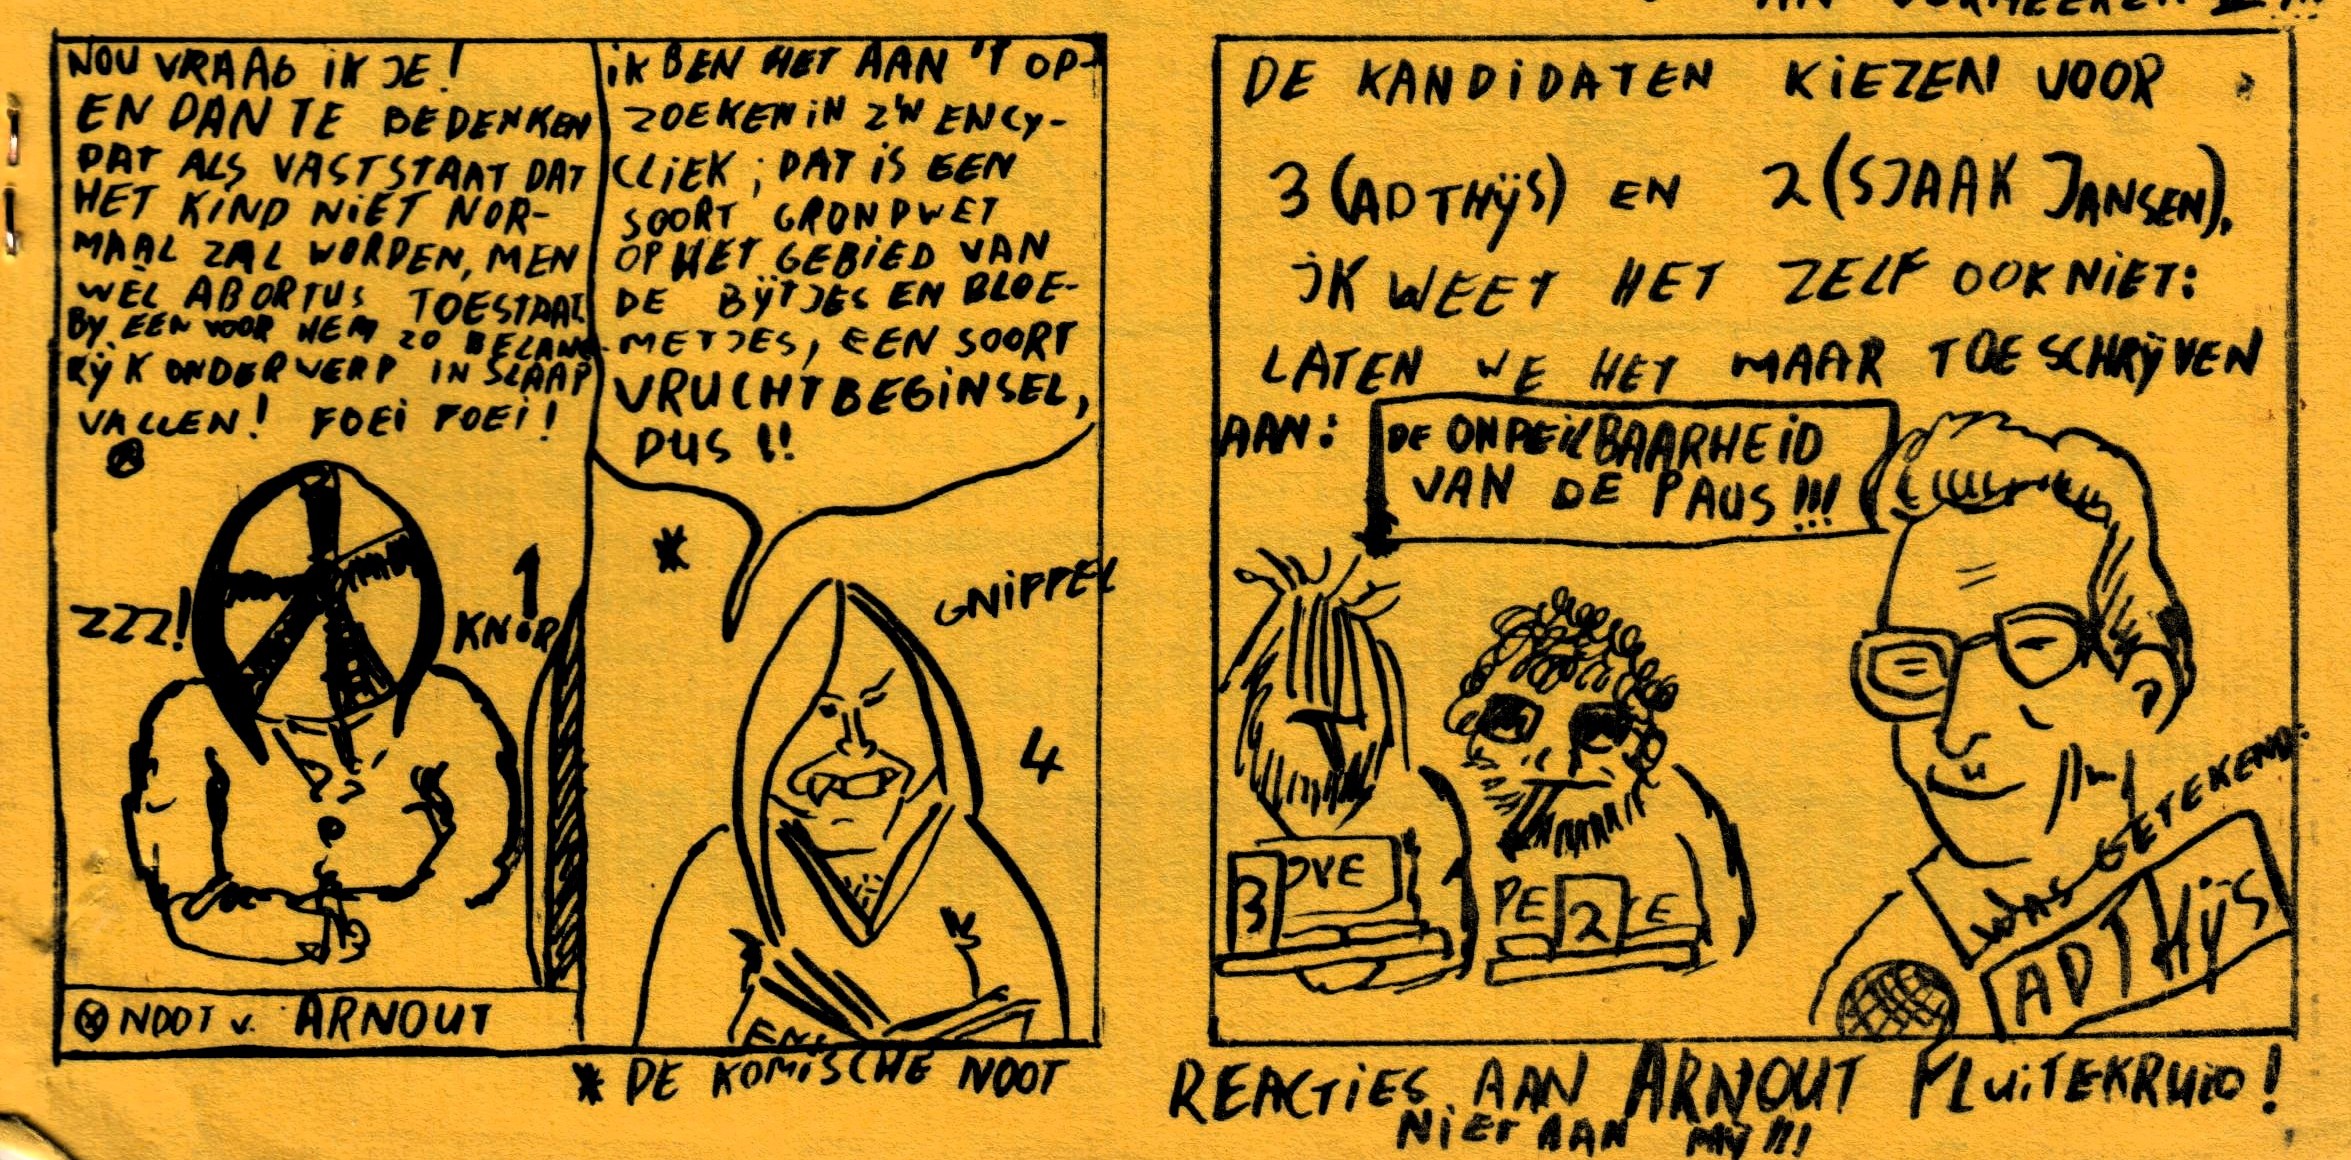 AN VERMEEREN
NOU VRAAG iK JE!
EN DAN TE BEDENKEN
DAT ALS VASTSTAAT DAT
HET KIND NIET NOR-
MAAL ZAL WORDEN, MEN
WÈL ABORTUS TOESTAAT.
BY EEN VOOR HEM ZO BELANG-
RŸK ONDERWERP IN SLAAP
VALLEN! FOEi FOEi!
ZZZ!
1
KNOR
⊗ NOOT v. ARNOUT
iK BEN HET AAN 'T OP-
ZOEKEN iN Z'N ENCY-
CLiEK; DAT iS EEN
SOORT GRONDWET
OP HET GEBiED VAN
DE BŸTJES EN BLOE-
METJES, EEN SOORT
VRUCHTBEGiNSEL,
DUS!!
*
GNiFFEL
4
ENC
* DE KOMiSCHE NOOT
DE KANDiDATEN KiEZEN VOOR
3 (AD THŸS) EN 2 (SJAAK JANSEN).
iK WEET HET ZELF OOK NiET:
LATEN WE HET MAAR TOESCHRŸVEN
AAN: DE ONPEiLBAARHEiD
VAN DE PAUS!!!
3 OVE
PE 2 TE
WAS GETEKEND:
AD THŸS
REACTiES AAN ARNOUT FLUiTEKRUiD!
NiET AAN MŸ!!!